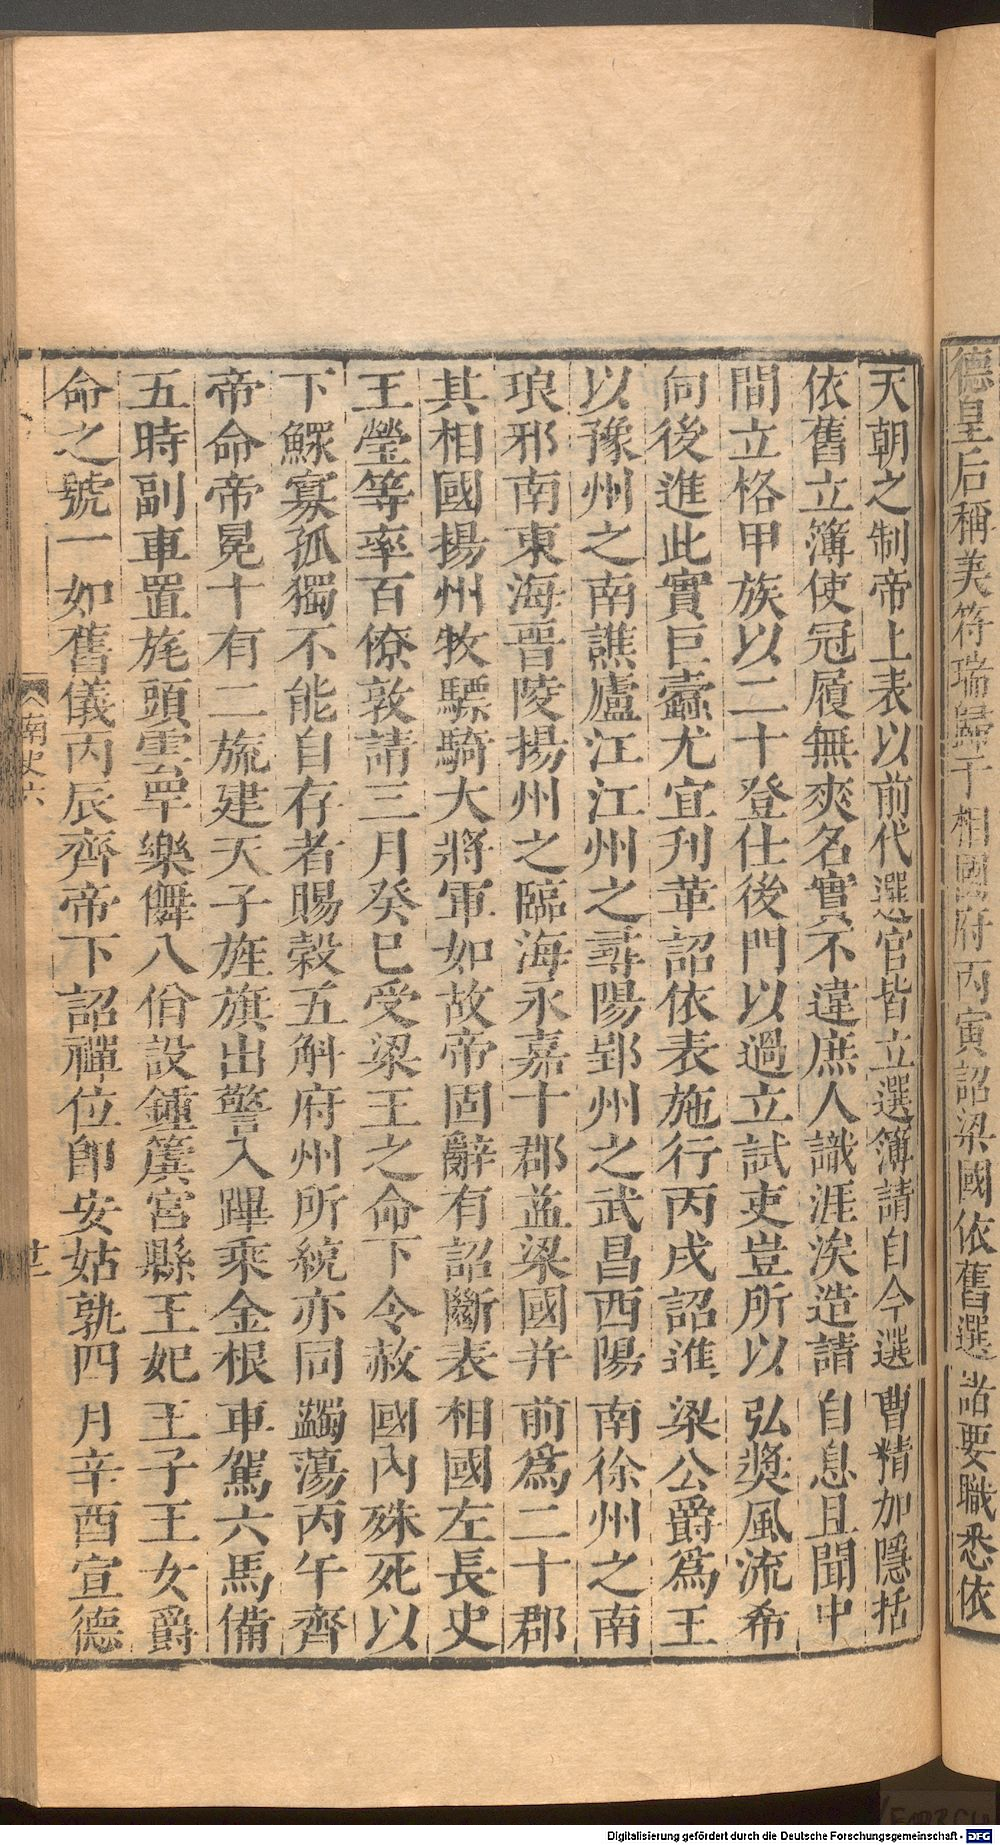 德皇后稱美符瑞歸于相國府丙寅詔梁國依舊選諸要職悉依
天朝之制帝上表以前代選官皆立選簿請自今選曹精加隱括
依舊立簿使冠屨無爽名實不違庶人識涯涘造請自息且聞中
間立格甲族以二十登仕後門以過立試吏豈所以弘獎風流希
向後進此實巨蠹尤宜刋革詔依表施行丙戌詔進梁公爵爲王
以豫州之南譙廬江江州之尋陽郢州之武昌西陽南徐州之南
琅邪南東海晉陵揚州之臨海永嘉十郡益梁國并前爲二十郡
其相國揚州牧驃騎大將軍如故帝固辭有詔斷表相國左長史
王瑩等率百僚敦請三月癸巳受梁王之命下令赦國內殊死以
下鰥寡孤獨不能自存者賜穀五斛府州所統亦同蠲蕩丙午齊
帝命帝冕十有二旒建天子旌旗出警入蹕乘金根車駕六馬備
五時副車置旄頭雲罕樂儛八佾設鍾簴宮縣王妃王子王女爵
命之號一如舊儀丙辰齊帝下詔禪位卽安姑孰四月辛酉宣德
南史六
廿
Digitalisierung gefördert durch die Deutsche Forschungsgemeinschaft - DFG